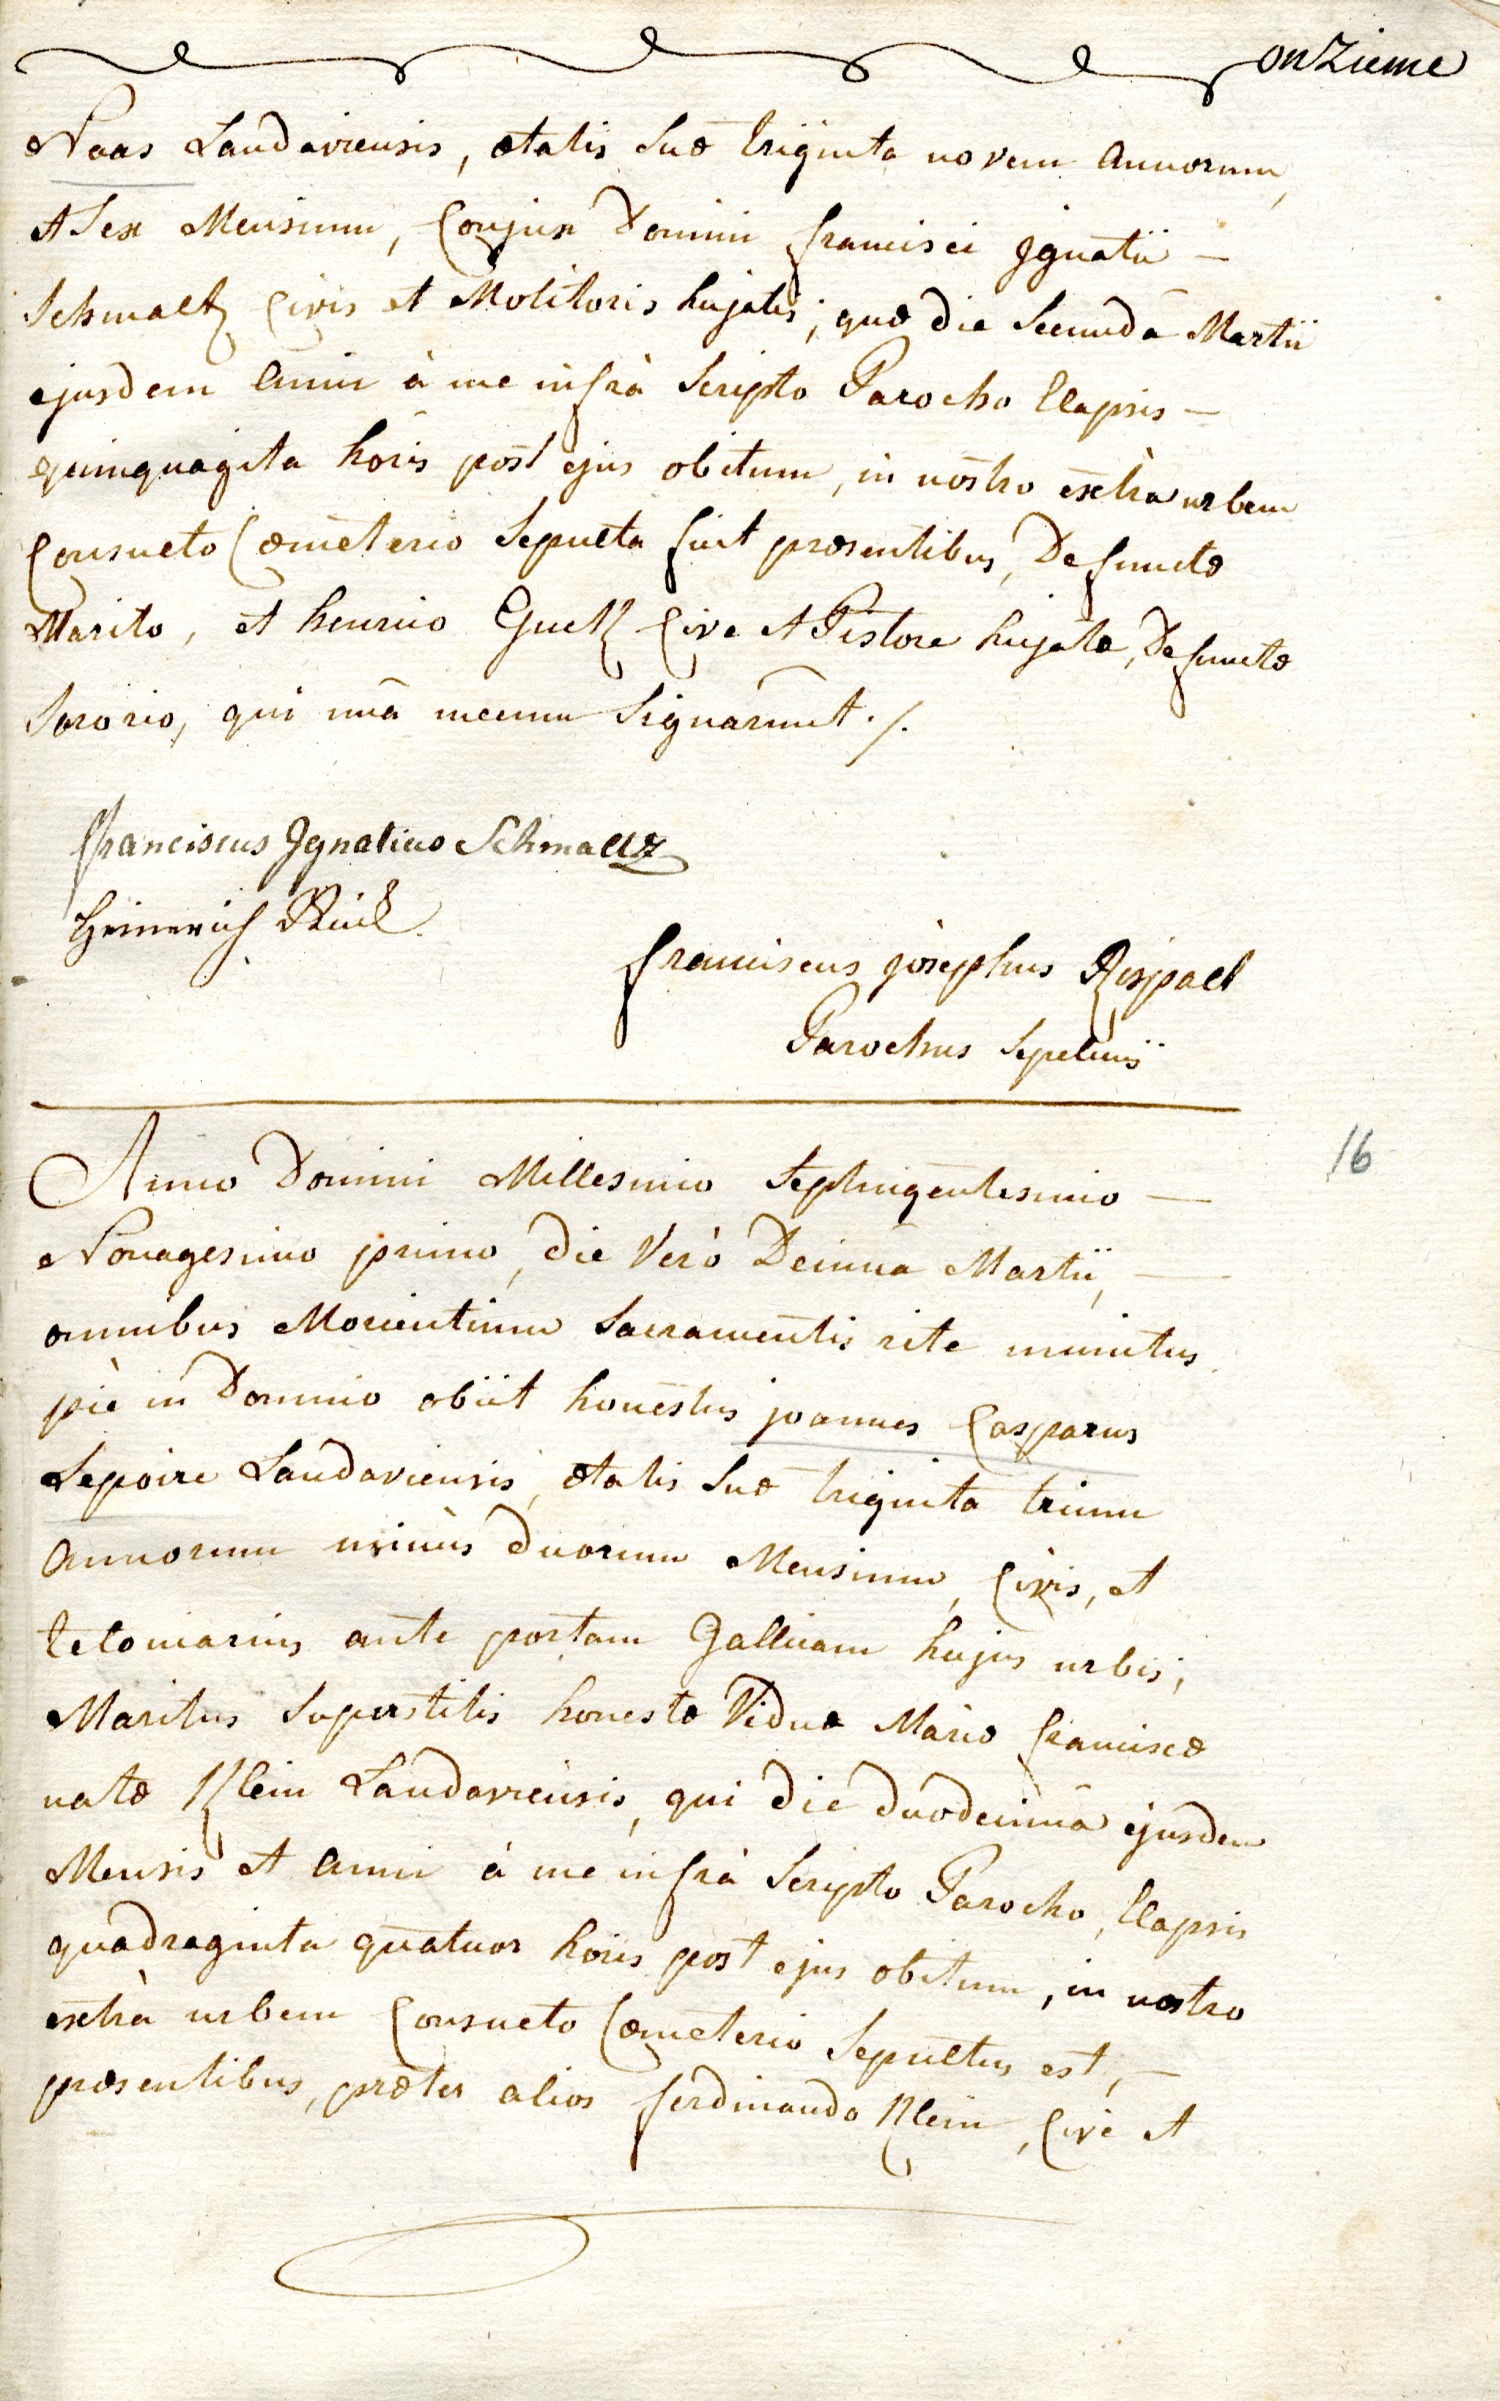 onzieme
Naas Landaviensis, ætatis suæ triginta novem annorum,
et sex Mensium, Conjux Domini francisci Jgnatii —
Schmaltz Civis et Molitoris hujatis, quæ die secunda Martii
ejusdem anni à me infrà scripto Parocho Elapsis —
quinquagita horis post ejus obitum, in nostro extra urbem
Consueto Cœmeterio sepulta fuit præsentibus, Defunctæ
Marito, et henrico Cive et Pistore hujate, Defunctæ
sororio, qui unà mecum signarunt ./.
franciscus Jgnatius Schmaltz
Heinerich
franciscus josephus Rispalt
Parochus sepelivi
16
Anno Domini Millesimo septingentesimo —
Nonagesimo primo, die Verò Decimâ Martii, —
omnibus Morientium sacramentis rite munitus
piè in Domino obiit honestus joannes Casparus
Lepoire Landaviensis, ætatis suæ triginta trium
annorum minùs duorum Mensium, Civis, et
telonarius ante portam Gallicam hujus urbis,
Maritus superstitis honestæ Viduæ Mariæ franciscæ
natæ Klein Landaviensis, qui die duodecimâ ejusdem
Mensis et anni à me infrà scripto Parocho, Elapsis
quadraginta quatuor horis post ejus obitum, in nostro
extrà urbem Consueto Cœmeterio sepultus est, —
præsentibus, præter alios ferdinando Klein, Cive et